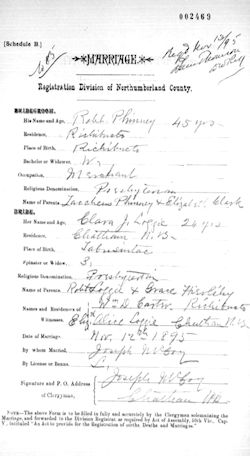 002469
[Schedule B.]
No 85
Regd Nov 13/95
MARRIAGE.
Registration Division of Northumberland County.
BRIDEGROOM.
His Name and Age, Robt. Phinney 45 yrs
Residence, Richibucto
Place of Birth, Richibucto
Bachelor or Widower, Wr
Occupation, Merchant
Religious Denomination, Presbyterian
Name of Parents Zaccheus Phinney & Elizabeth Clark
BRIDE.
Her Name and Age, Clara J. Loggie 26 yrs
Residence, Chatham N.B.
Place of Birth Tabusintac
Spinster or Widow, S.
Religious Denomination, Presbyterian
Name of Parents, Robt Loggie & Grace
Names and Residences of Witnesses, Wm D. Carter, Richibucto
Alice Loggie Chatham N.B.
Date of Marriage, Nov. 12th 1895
By whom Married, Joseph McCoy
By License or Banns, L
Signature and P. O. Address of Clergyman, Joseph McCoy
Chatham NB
NOTE.—The above Form is to be filled in fully and accurately by the Clergyman solemnizing the Marriage, and forwarded to the Division Registrar as required by Act of Assembly, 50th Vic., Cap. V., intituled "An Act to provide for the Registration of Births, Deaths and Marriages."